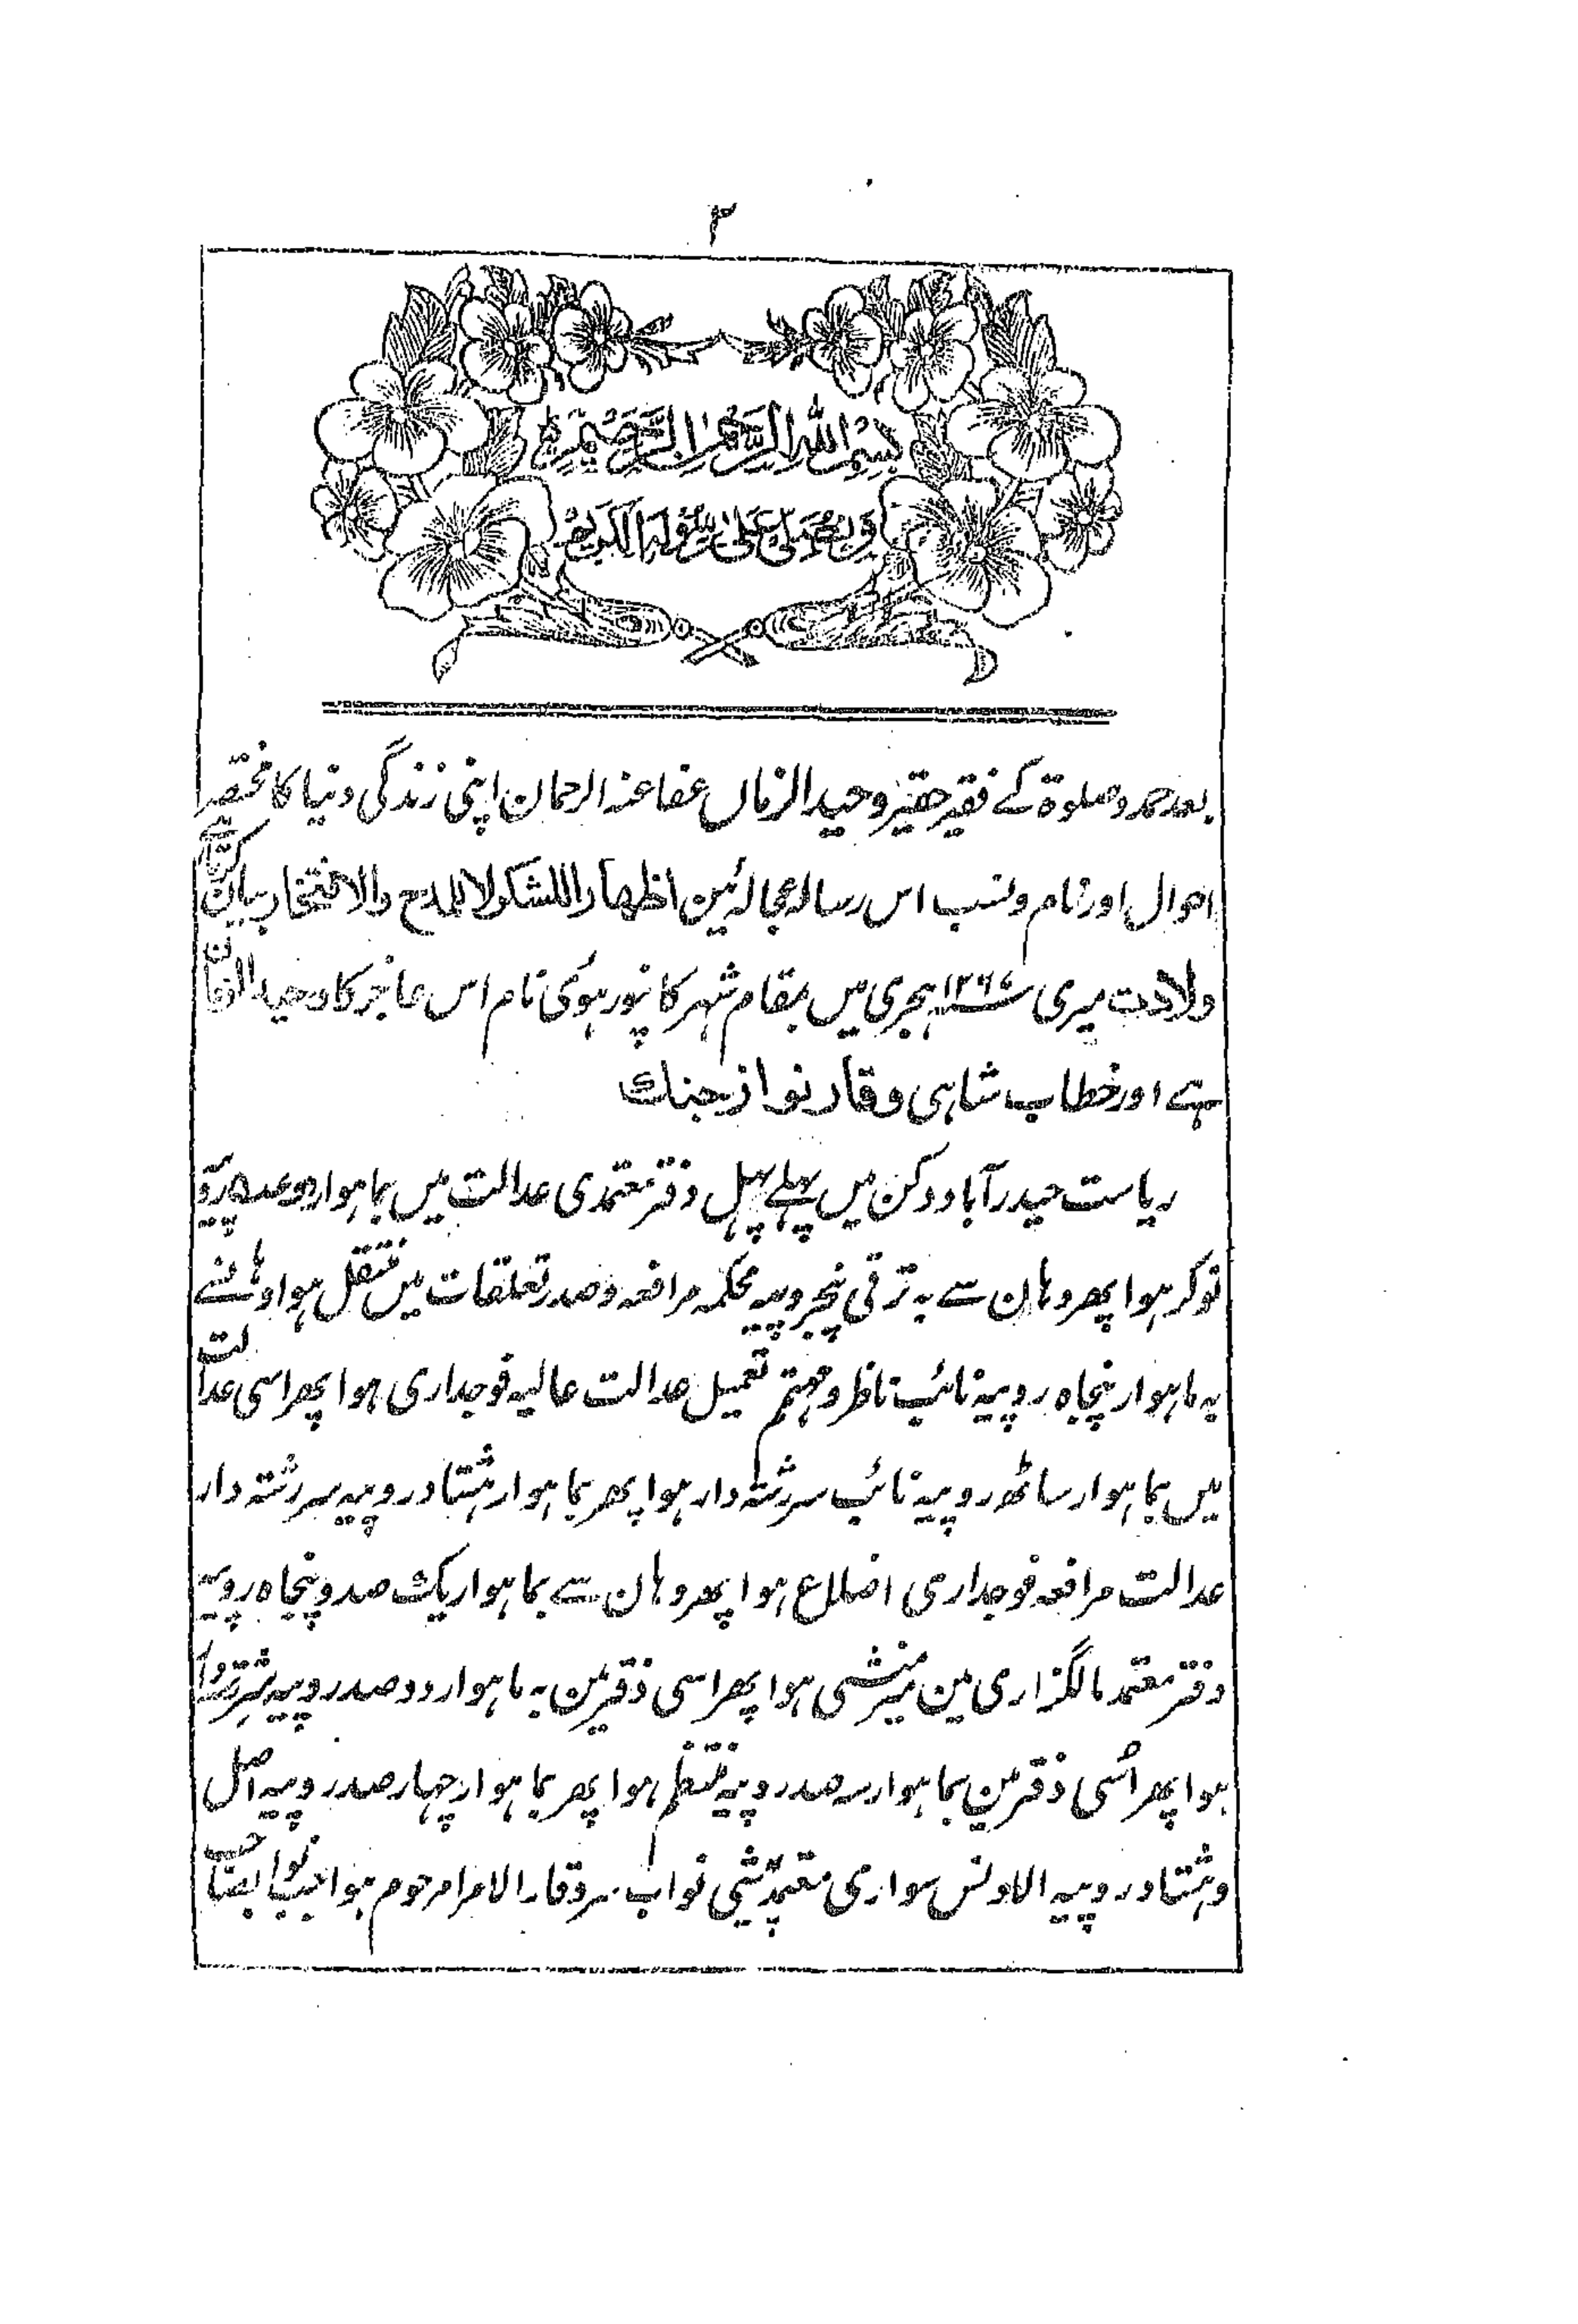 ۲
بسم الله الرحمن الرحيم
ونحمده ونصلي على رسوله الكريم
بعد حمد و صلوة کے فقیر حقیر وحید الزماں عفا عنہ الرحمان اپنی زندگی دنیا کا مختصر
احوال اور نام و نسب اس رسالہ عجالہ مین اظهارا للشکر لا للمدح والافتخار بیان کرتا ہے
ولادت میری ۱۲۶۷ ہجری میں بمقام شہر کانپور ہوئی نام اس عاجز کا وحید الزمان
ہے اور خطاب شاہی وقار نواز جنگ
ریاست حیدرآباد دکن میں پہلے پہل دفتر معتمدی عدالت میں بماہوار روپیہ
نوکر ہوا پھر وہان سے بہ ترقی پنجروپیہ محکمہ مرافعہ و صدر تعلقات میں منتقل ہوا وہانسے
بہ ماہوار پنجاہ روپیہ نائب ناظر و مہتمم تعمیل عدالت عالیہ فوجداری ہوا پھر اسی عدالت
میں بماہوار ساٹھ روپیہ نائب سررشتہ دار ہوا پھر بماہوار ہشتاد روپیہ سررشتہ دار
عدالت مرافعہ فوجداری اضلاع ہوا پھر وہان سے بماہوار یکصد و پنجاہ روپیہ
دفتر معتمد مالگزاری مین میر منشی ہوا پھر اسی دفتر مین بہ ماہوار دو صد روپیہ سررشتہ دار
ہوا پھر اُسی دفتر مین بماہوار سہ صد روپیہ منتظم ہوا پھر بماہوار چہار صد روپیہ اصل
و ہشتاد روپیہ الاونس سواری معتمد پیشی نواب سر وقار الامرا مرحوم ہوا جب نواب صاحب